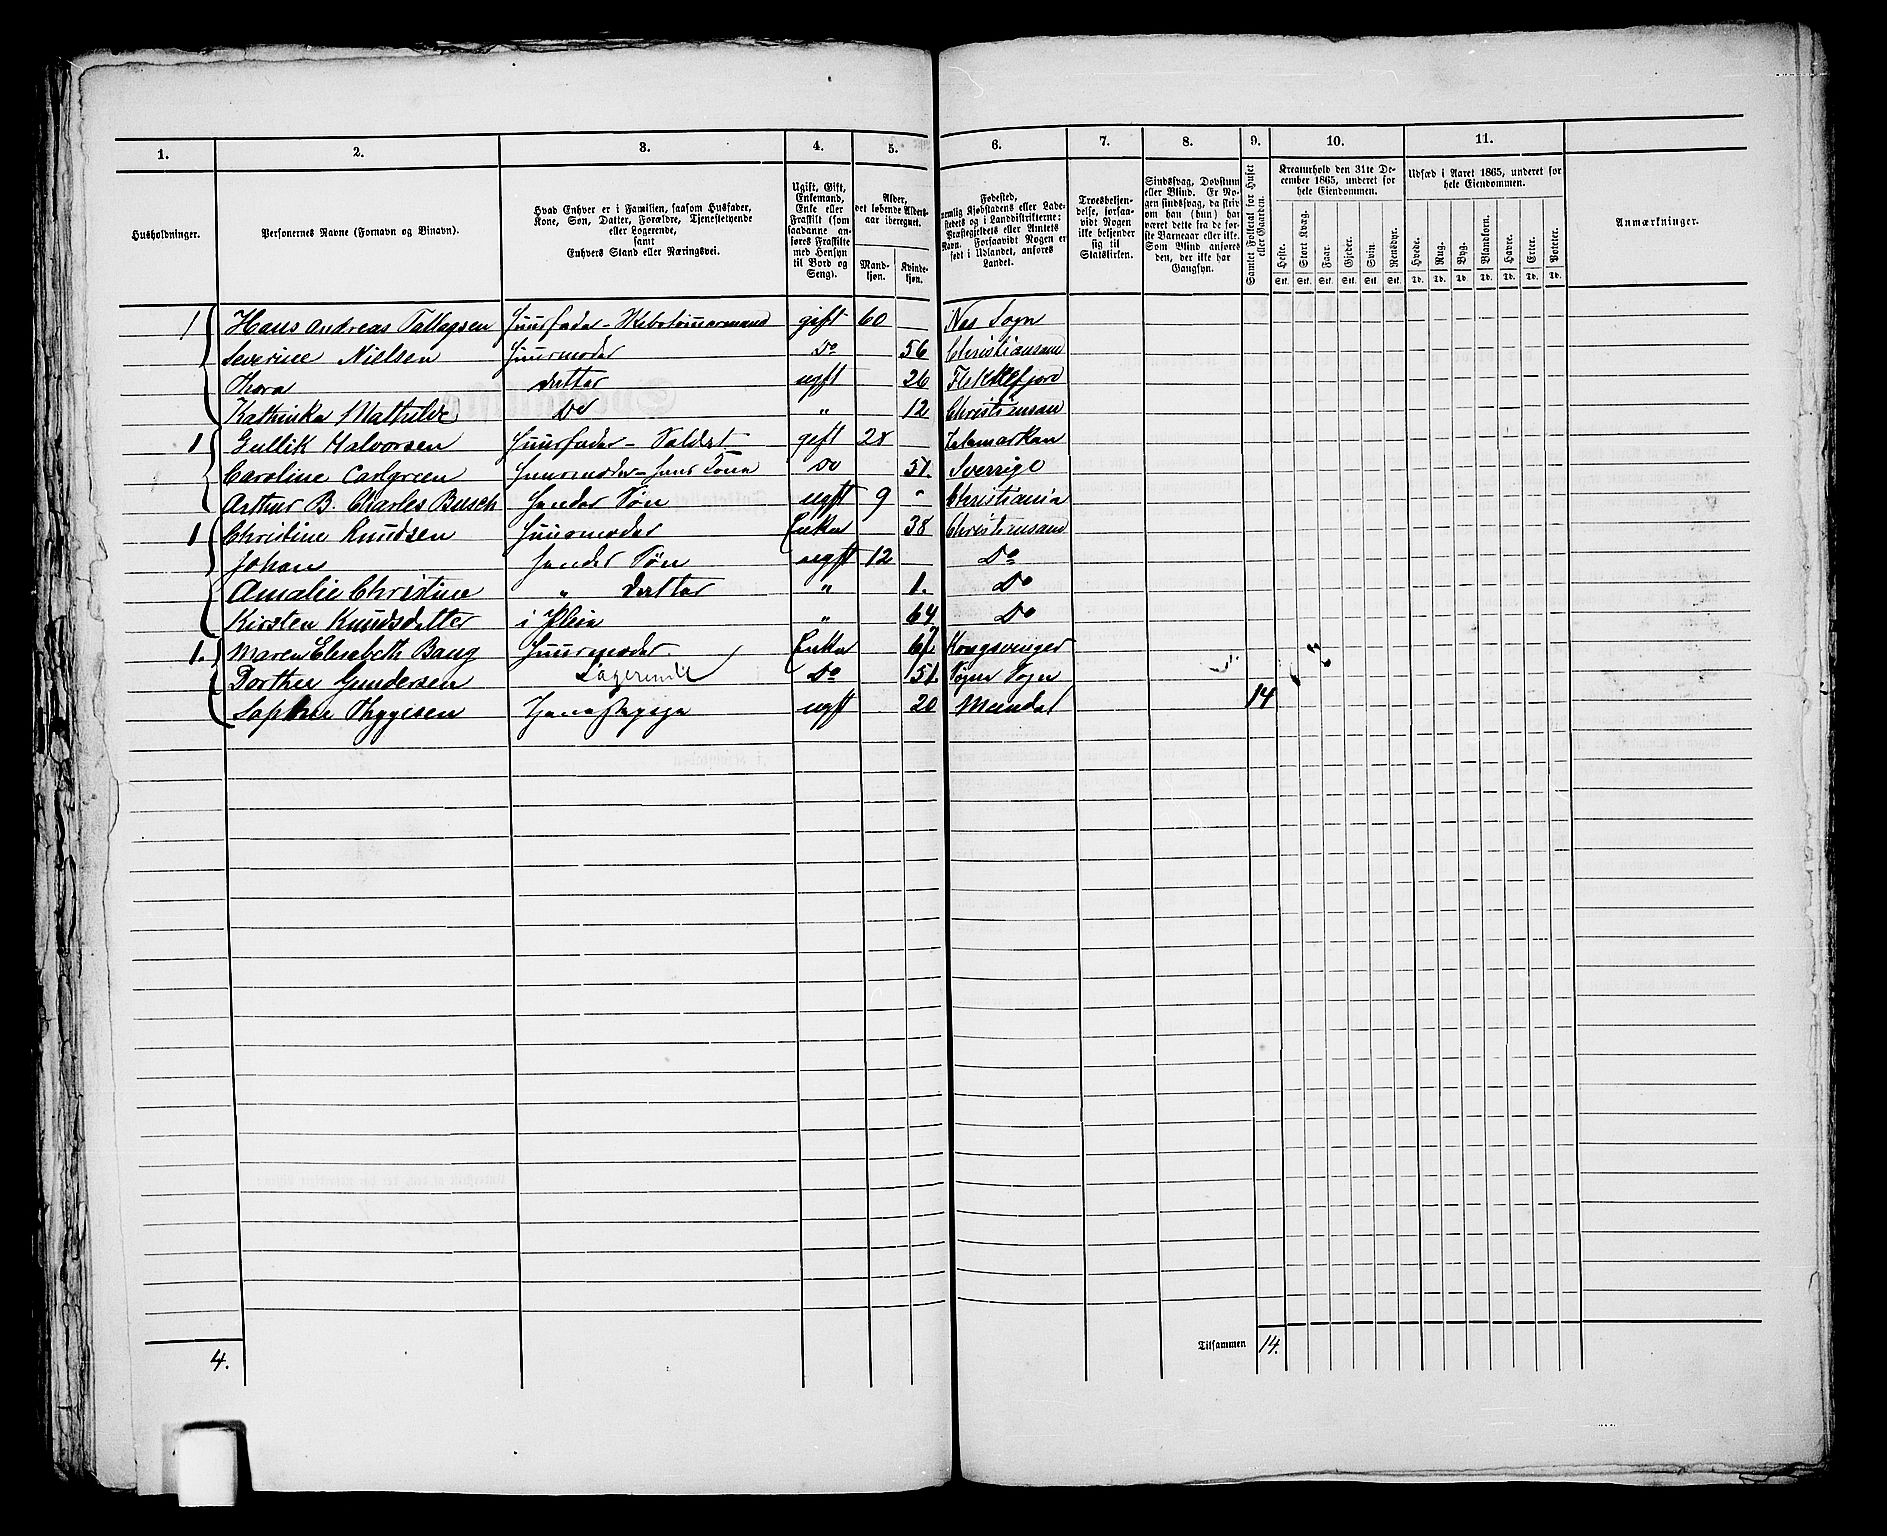 1. 2. 3. 4. 5. 6. 7. 8. 9. 10. 11.
Husholdninger.
Personernes Navne (Fornavn og Binavn).
Hvad Enhver er i Familien, saasom Husfader,
Kone, Søn, Datter, Forældre, Tjenestetyende
eller Logerende,
samt
Enhvers Stand eller Næringsvei.
Ugift, Gift,
Enkemand,
Enke eller
Fraskilt (som
saadanne an-
føres Fraskilte
med Hensyn
til Bord og
Seng).
Alder,
det løbende Alders-
aar iberegnet.
Mand-
kjøn.
Kvinde-
kjøn.
Fødested,
nemlig Kjøbstadens eller Lade-
stedets og i Landdistrikterne:
Præstegjeldets eller Amtets
Navn. Forsaavidt Nogen er
født i Udlandet, anføres
Landet.
Troesbekjen-
delse, forsaa-
vidt Nogen
ikke bekjender
sig til
Statskirken.
Sindssvag, Døvstum
eller Blind. Er No-
gen sindssvag, da skriv
om han (hun) har
været dette fra de før-
ste Barneaar eller ikke.
Som Blind anføres
den, der ikke har
Gangsyn.
Samlet Folketal for Huset
eller Gaarden.
Kreaturhold den 31te De-
cember 1865, underet for
hele Eiendommen.
Heste. Stort Kvæg. Faar. Gjeder. Svin. Rensdyr.
Stk. Stk. Stk. Stk. Stk. Stk.
Udsæd i Aaret 1865, underet for
hele Eiendommen.
Hvede. Rug. Byg. Blandkorn. Havre. Erter. Poteter.
Td. Td. Td. Td. Td. Td. Td.
Anmærkninger.
1 Hans Andreas Tallagsen Huusfader - gift 60 Nes Sogn
Severine Nielsen Huusmoder Do 56 Christiansand
Thora datter ugft 26 Flekkefjord
Kathinka Mathilde Do " 12 Christiansan
1 Gullik Halvorsen Huusfader - Soldat gift 28 Telemarken
Caroline Carlgreen Huusmoder - hans Kone Do 51. Sverrige
Arthur B. Charles Busch hendes Søn ugft 9 " Christiania
1 Christine Knudsen Huusmoder Enke 38 Christiansand
Johan hendes Søn ugft 12 Do
Amalie Christine " datter " 1. Do
Kirsten Knudsdatter i Pleie " 64 Do
1. Maren Elisabeth Bang Huusmoder. Enke 61. Kongsvinger
Dorthea Gundersen Logerende Do 51 Søgne Sogn
Sophie Thygesen Tjenestepige ugft 20 Mandal 14
4. Tilsammen 14.